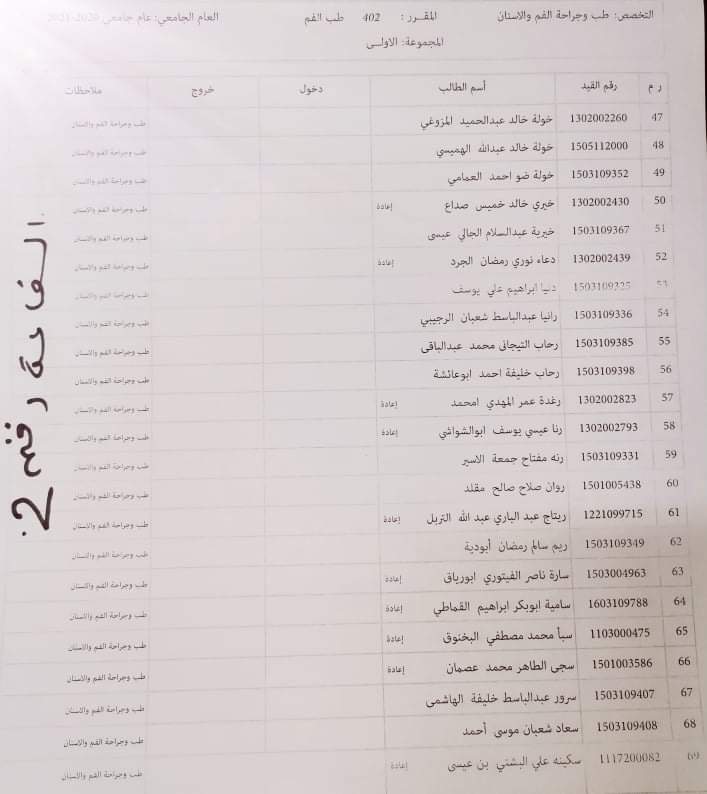 التخصص: طب وجراحة الفم والاسنان المقـرر: 402 طب الفم العام الجامعي: عام جامعي 2020-2021
المجموعة: الاولـى
ر م رقم القيد أسم الطالب دخول خروج ملاحظات
47 1302002260 خولة خالد عبدالحميد المزوغي طب وجراحة الفم والاسنان
48 1505112000 خولة خالد عبدالله الهميسي طب وجراحة الفم والاسنان
49 1503109352 خولة ضو احمد العمامي طب وجراحة الفم والاسنان
50 1302002430 خيري خالد خميس صداع إعادة طب وجراحة الفم والاسنان
51 1503109367 خيرية عبدالسلام الجالي عيسى طب وجراحة الفم والاسنان
52 1302002439 دعاء نوري رمضان الجرد إعادة طب وجراحة الفم والاسنان
53 1503109325 دنيا ابراهيم علي يوسف طب وجراحة الفم والاسنان
54 1503109336 رانيا عبدالباسط شعبان الرجيبي طب وجراحة الفم والاسنان
55 1503109385 رحاب التيجانى محمد عبدالباقى طب وجراحة الفم والاسنان
56 1503109398 رحاب خليفة احمد ابوعائشة طب وجراحة الفم والاسنان
57 1302002823 رغدة عمر المهدي امحمد إعادة طب وجراحة الفم والاسنان
58 1302002793 رنا عيسي يوسف ابوالشواشي إعادة طب وجراحة الفم والاسنان
59 1503109331 رنه مفتاح جمعة الاسير طب وجراحة الفم والاسنان
60 1501005438 روان صلاح صالح مقلد طب وجراحة الفم والاسنان
61 1221099715 ريتاج عبد الباري عبد الله التربل إعادة طب وجراحة الفم والاسنان
62 1503109349 ريم سالم رمضان أبودية طب وجراحة الفم والاسنان
63 1503004963 سارة ناصر الفيتوري ابورياق إعادة طب وجراحة الفم والاسنان
64 1603109788 سامية ابوبكر ابراهيم القماطي إعادة طب وجراحة الفم والاسنان
65 1103000475 سبأ محمد مصطفي البخنوق إعادة طب وجراحة الفم والاسنان
66 1501003586 سجى الطاهر محمد عصمان إعادة طب وجراحة الفم والاسنان
67 1503109407 سرور عبدالباسط خليفة الهاشمى طب وجراحة الفم والاسنان
68 1503109408 سعاد شعبان موسى أحمد طب وجراحة الفم والاسنان
69 1117200082 سكينه علي البشتي بن عيسى إعادة طب وجراحة الفم والاسنان
القاعة رقم 2.